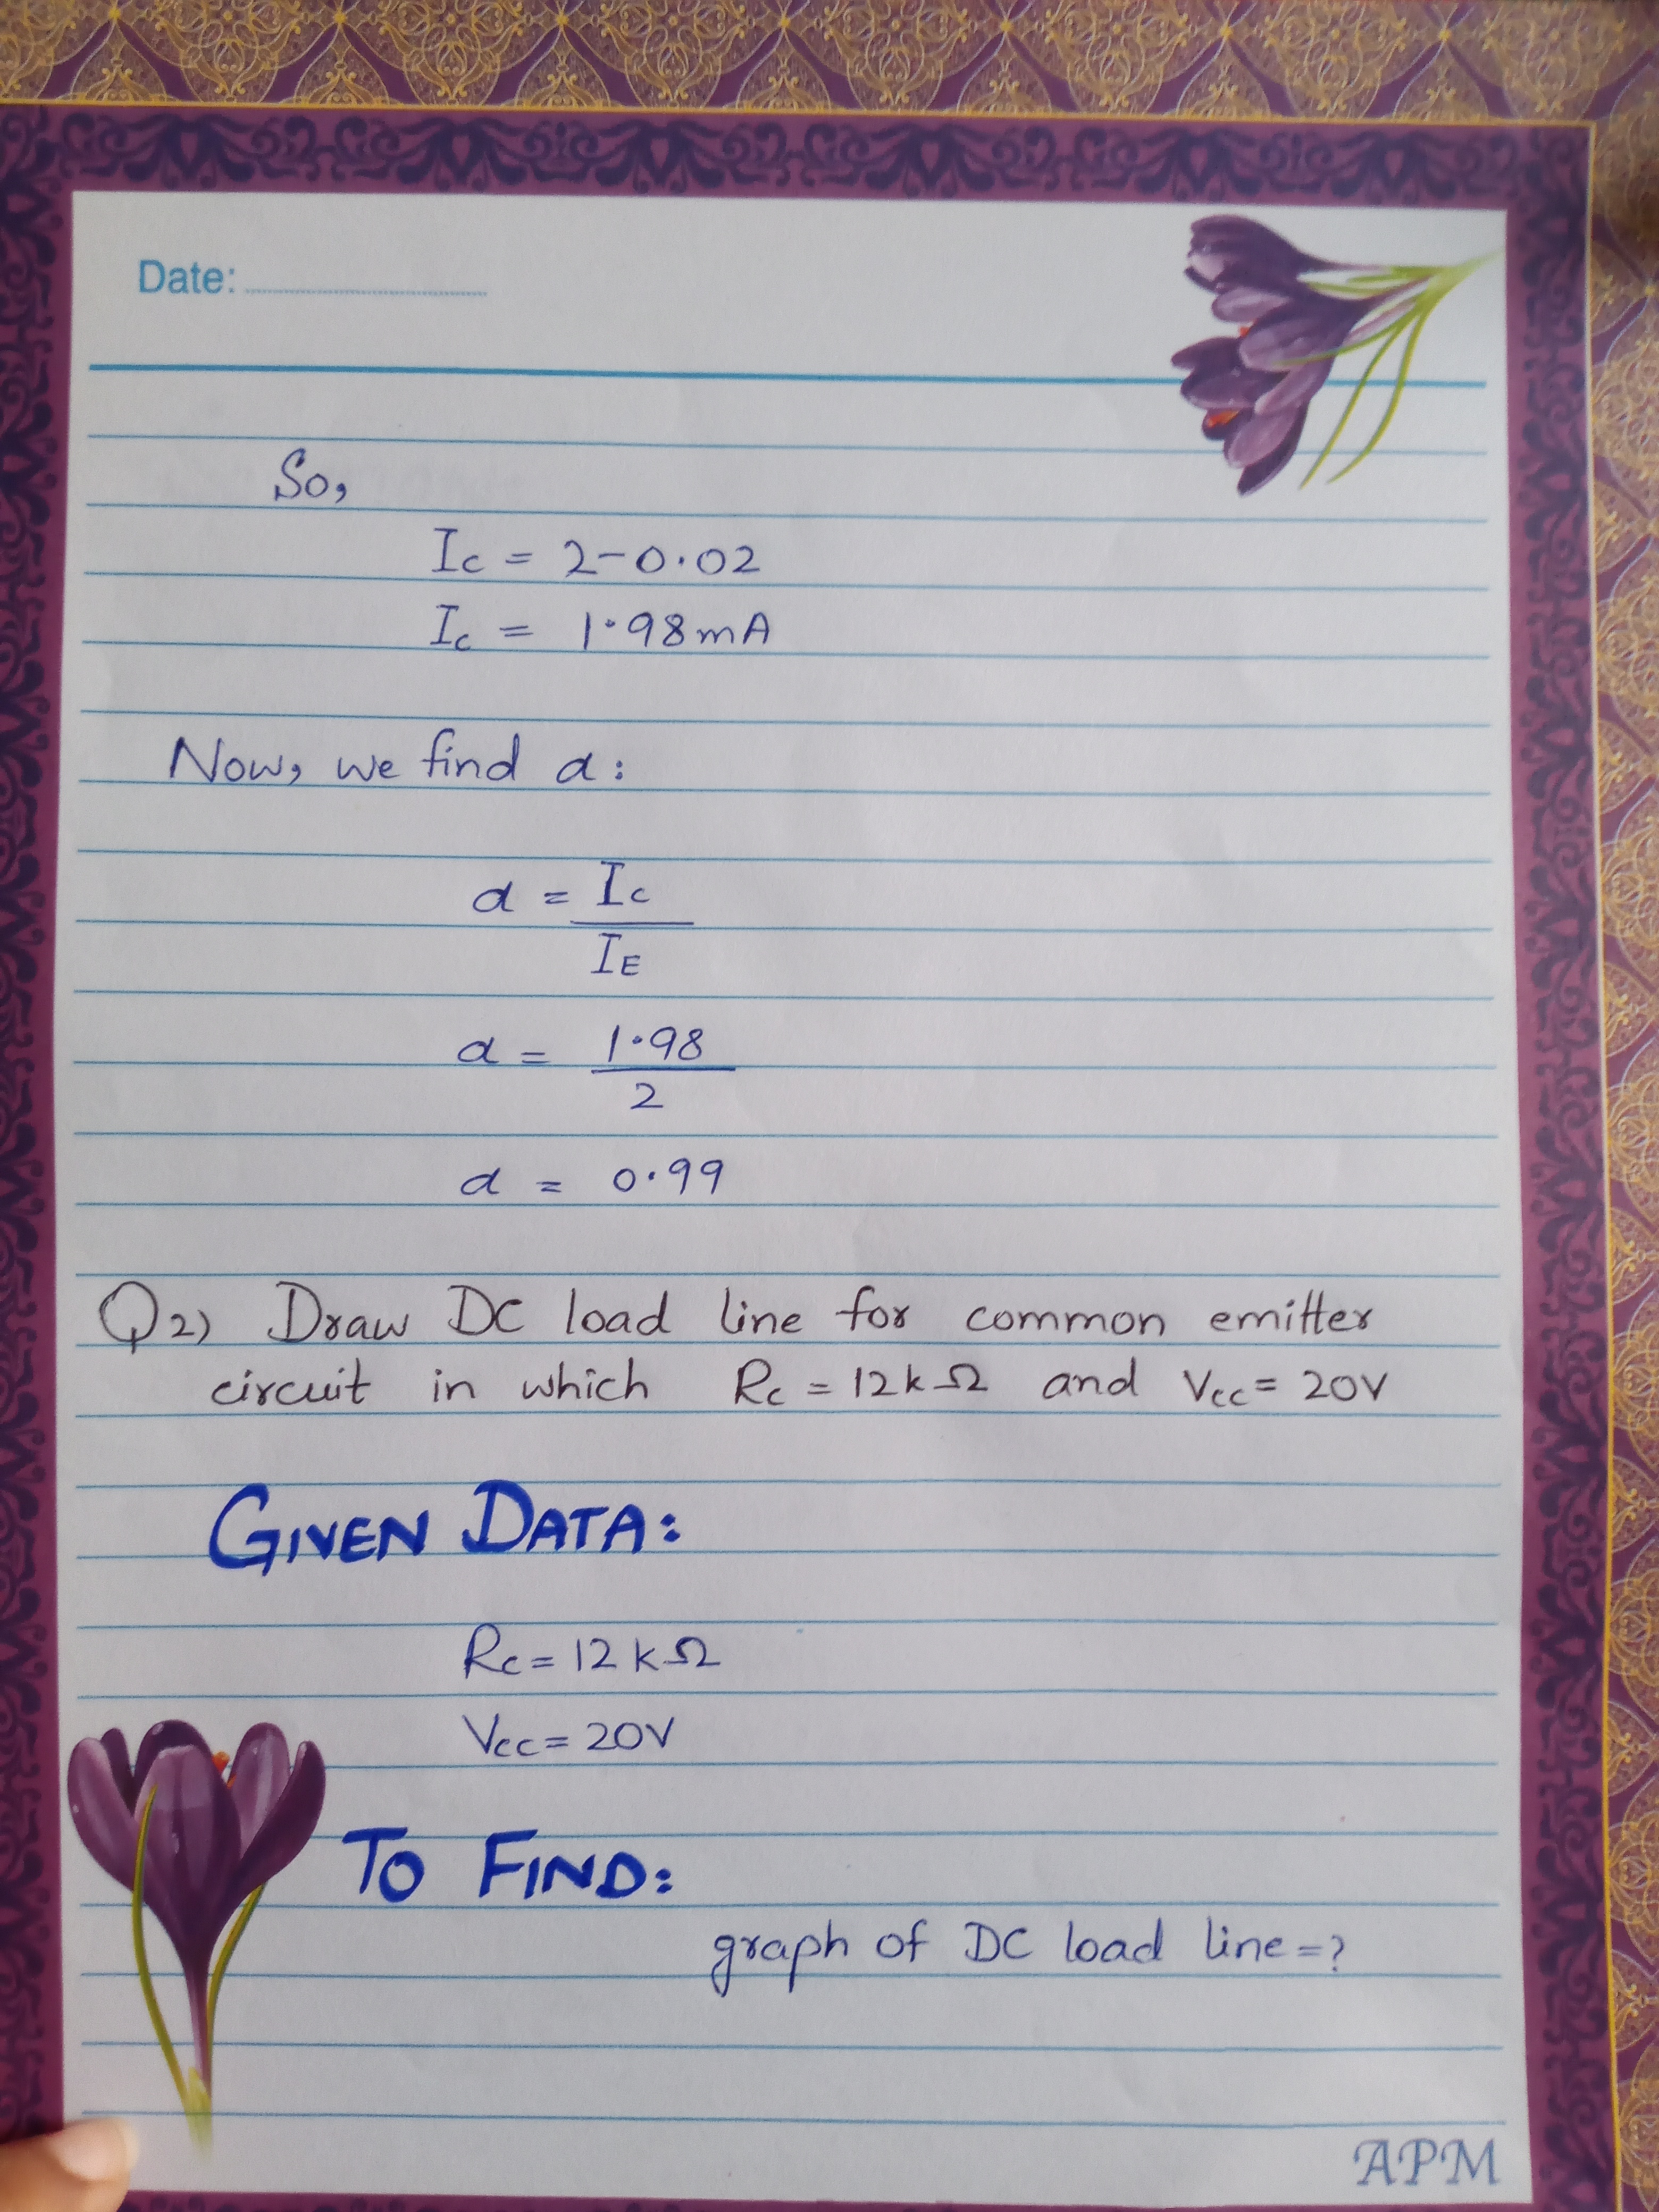 Date:
So,
Ic = 2-0.02
Ic = 1.98mA
Now, we find α:
α = Ic
IE
α = 1.98
2
α = 0.99
Q2) Draw DC load line for common emitter
circuit in which Rc = 12kΩ and Vcc = 20V
GIVEN DATA:
Rc = 12kΩ
Vcc = 20V
TO FIND:
graph of DC load line=?
APM